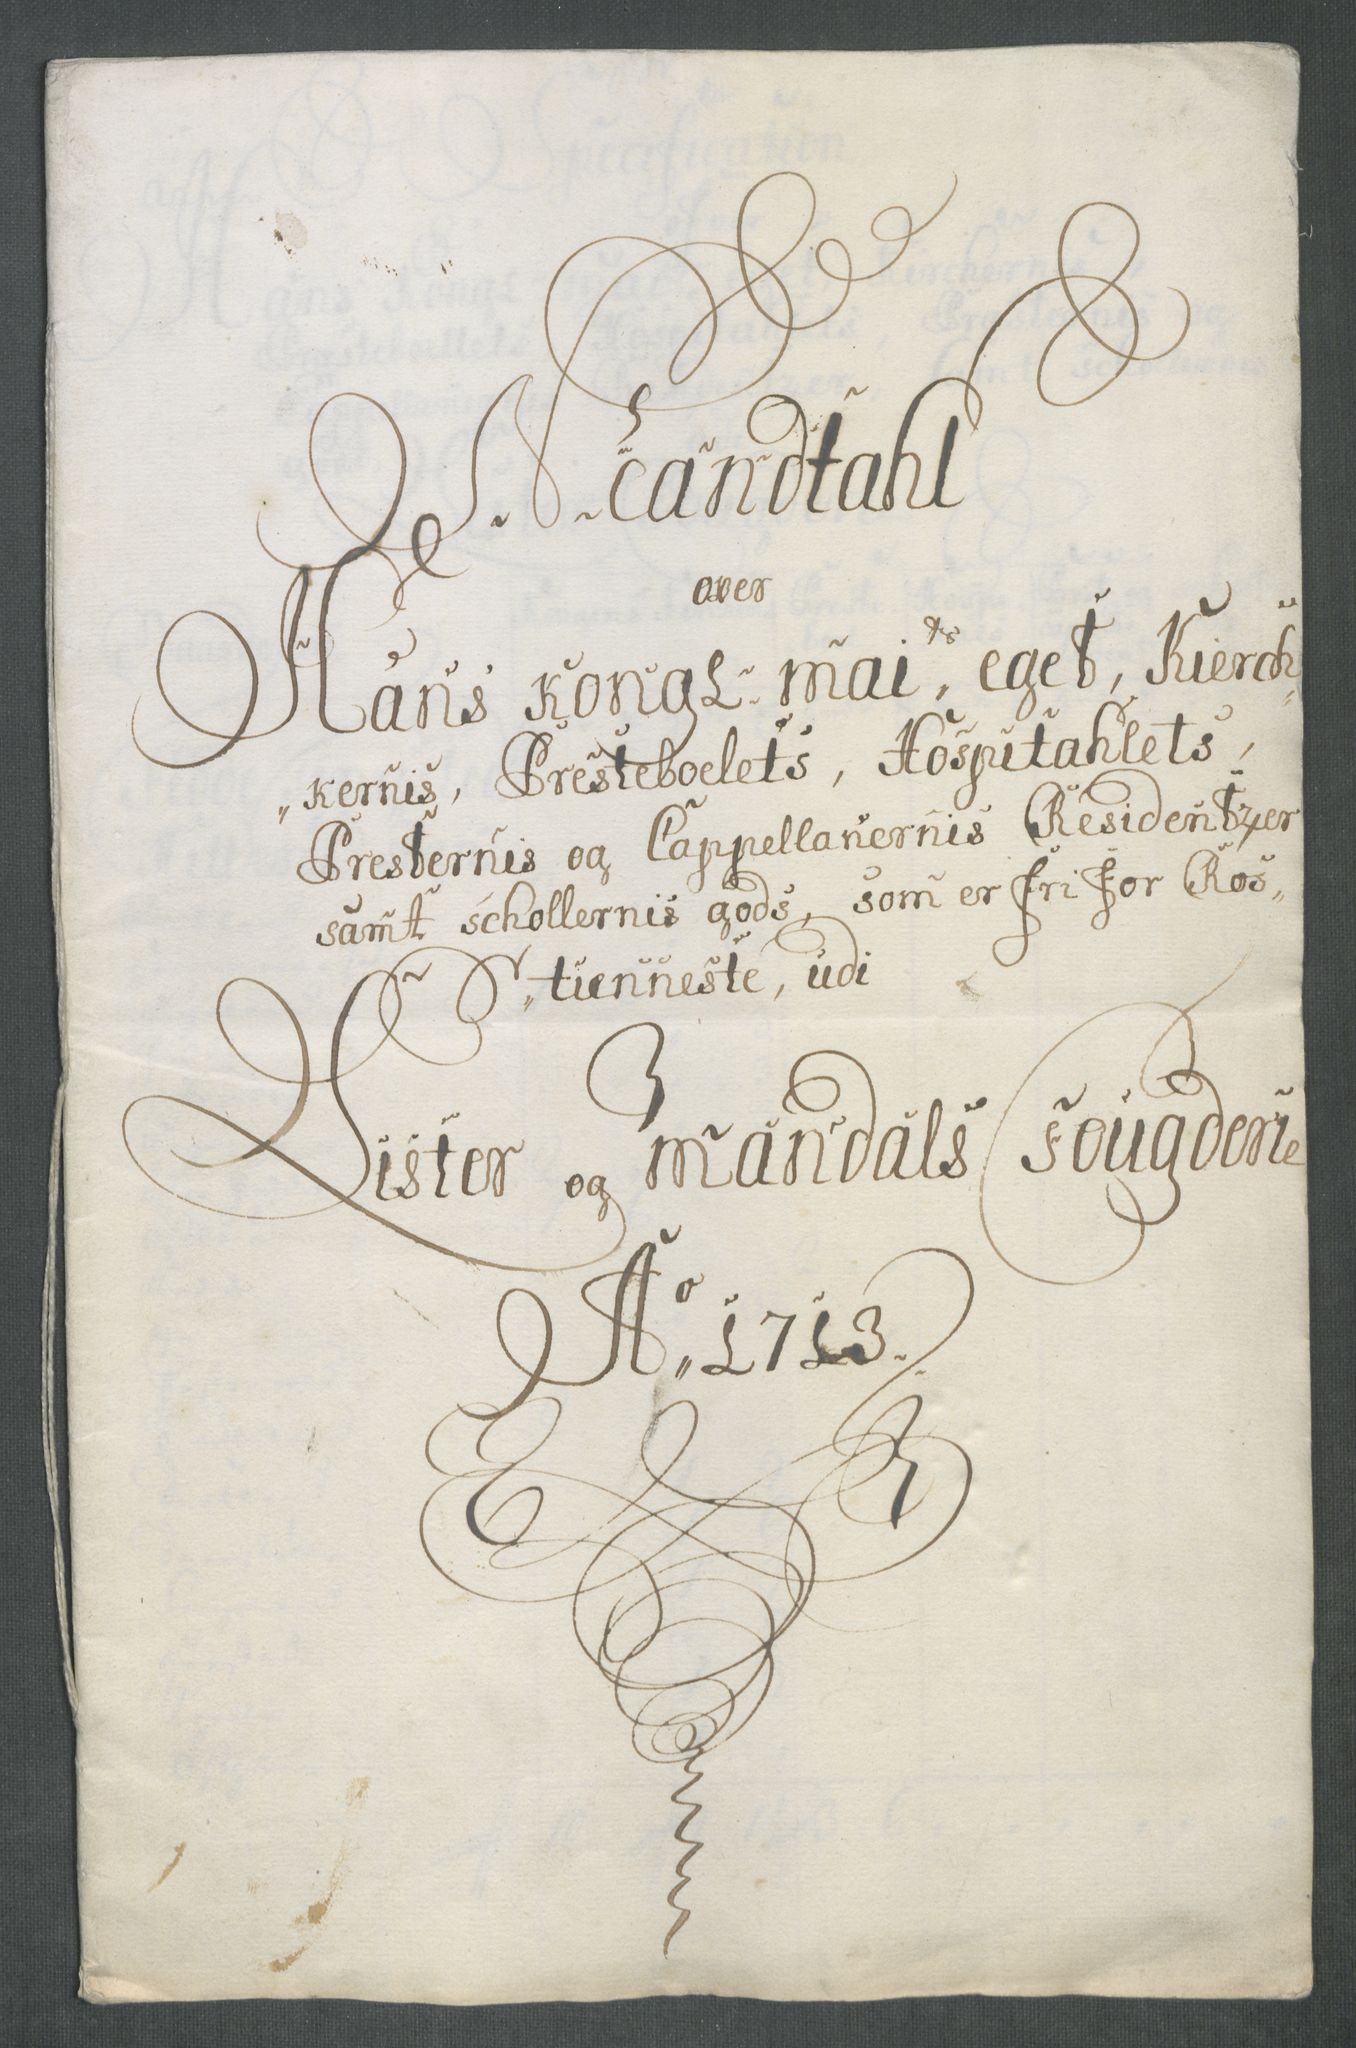 Mandtahl
over
Hans Kongl. Mai.ts eget, Kierch„
„kernis, Presteboelets, Hospitahlets,
Presternis og Cappellanernis Residentzer
samt schollernis gods, som er fri for Ros„
„tienneste, udi
Lister og Mandals Fougderie
A.o 1713.